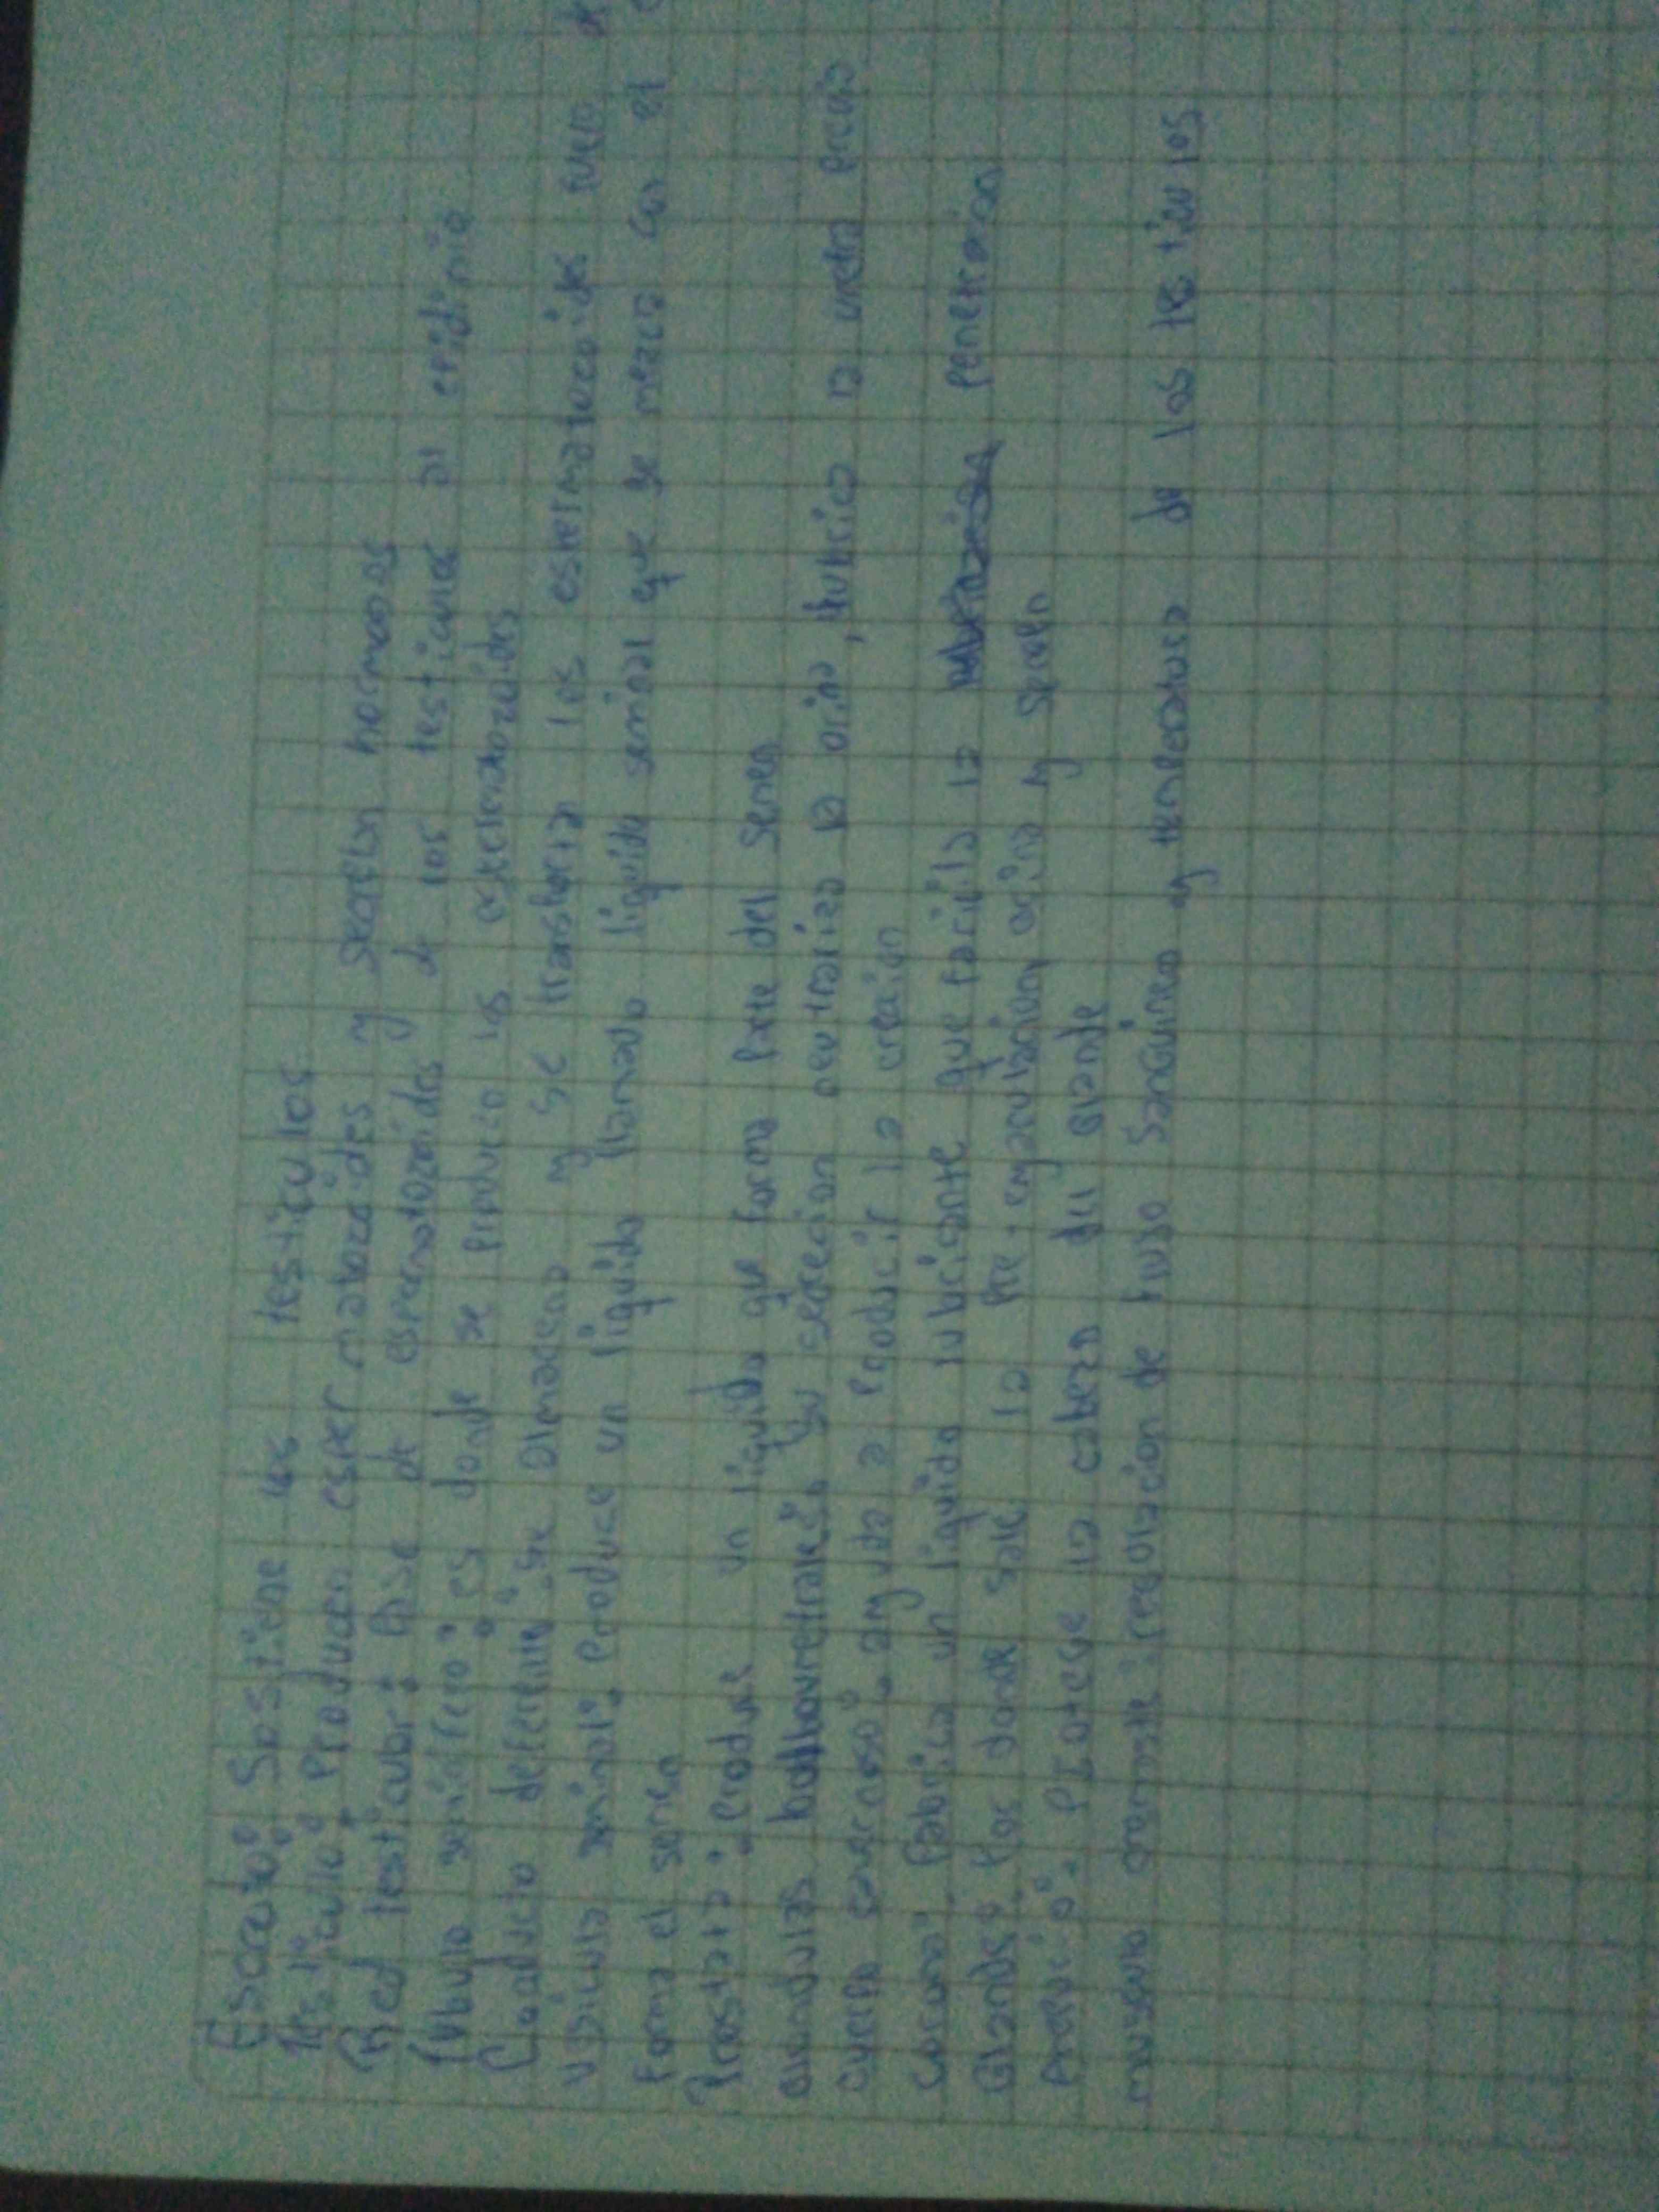 Escroto: Sostiene los testiculos
Testiculo: Producen esper matozoides y secretan hormonas
Red testicular: Pase de espermatozoides y de los testiculos al epidimio
Tubulo seminifero: es donde se producio los espermatozoides
Conducto deferente: se almacena y se transporta los espermatozoides
Vsicula seminal: Produce un liquido llamado liquido seminal que se mezca con el
forma el semen
Prostata: produce un liquido que forma parte del semen
Glandulas bulbouretrales: su secrecion neutraliza la orina, lubrica la uretra
Cuerpo cavernoso: ayuda a producir la ereccion
fabrica un liquido lubricante que facilita la penetracion
Glande: Por donde sale la Pre-eyaculacion, orina y semen
Prepucio: Protege la cabeza del glande
musculo cremaster: regulacion de flujo sanguineo y temperatura de los testiculos